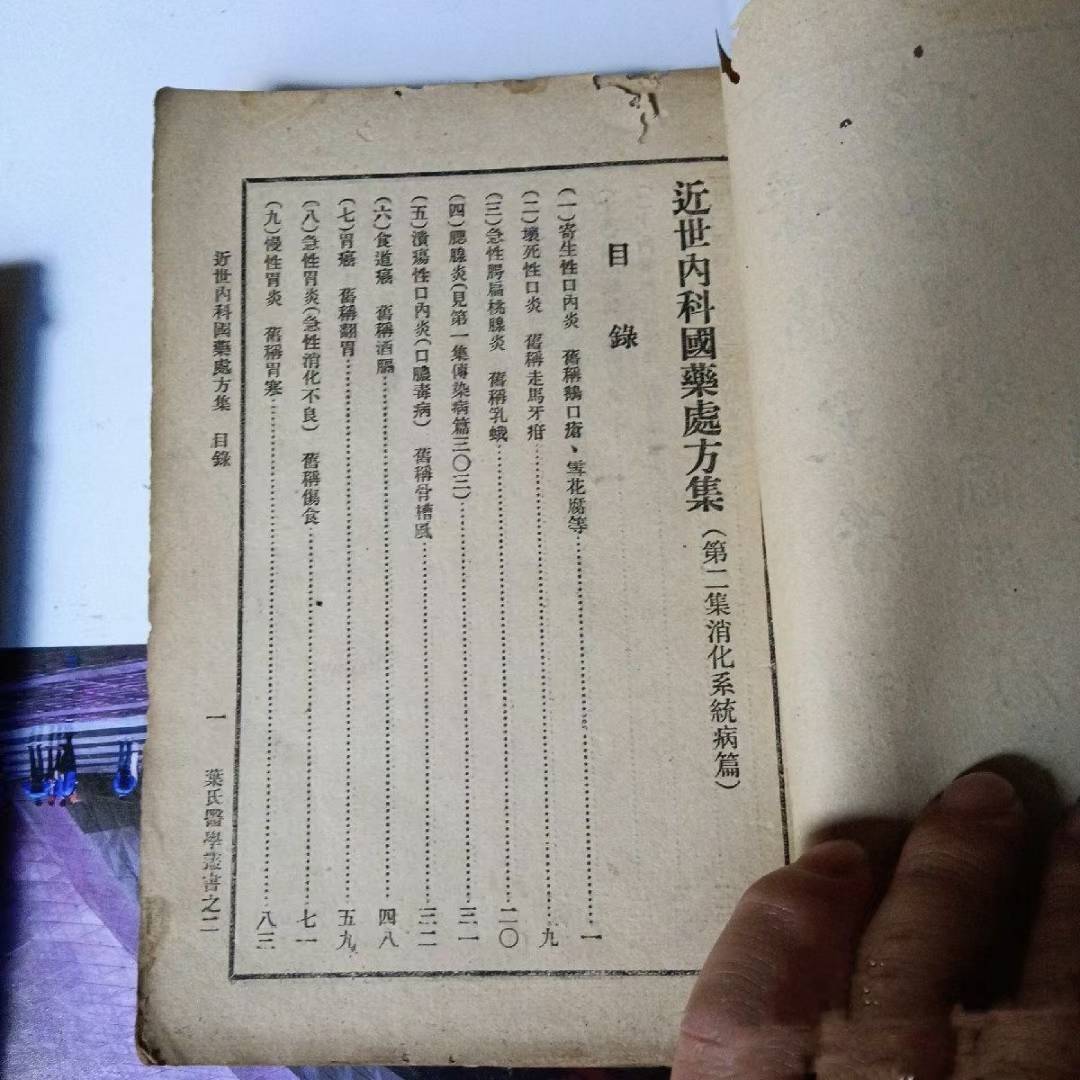 近世內科國藥處方集(第二集消化系統病篇)
目錄
(一)寄生性口內炎 舊稱鵝口瘡、雪花腐等……一
(二)壞死性口炎 舊稱走馬牙疳……九
(三)急性腭扁桃腺炎 舊稱乳蛾……二〇
(四)腮腺炎(見第一集傳染病篇三〇三)……三一
(五)潰瘍性口內炎(口膿毒病) 舊稱骨槽風……三二
(六)食道癌 舊稱酒膈……四八
(七)胃癌 舊稱翻胃……五九
(八)急性胃炎(急性消化不良) 舊稱傷食……七一
(九)慢性胃炎 舊稱胃寒……八三
近世內科國藥處方集 目錄 一 葉氏醫學叢書之二